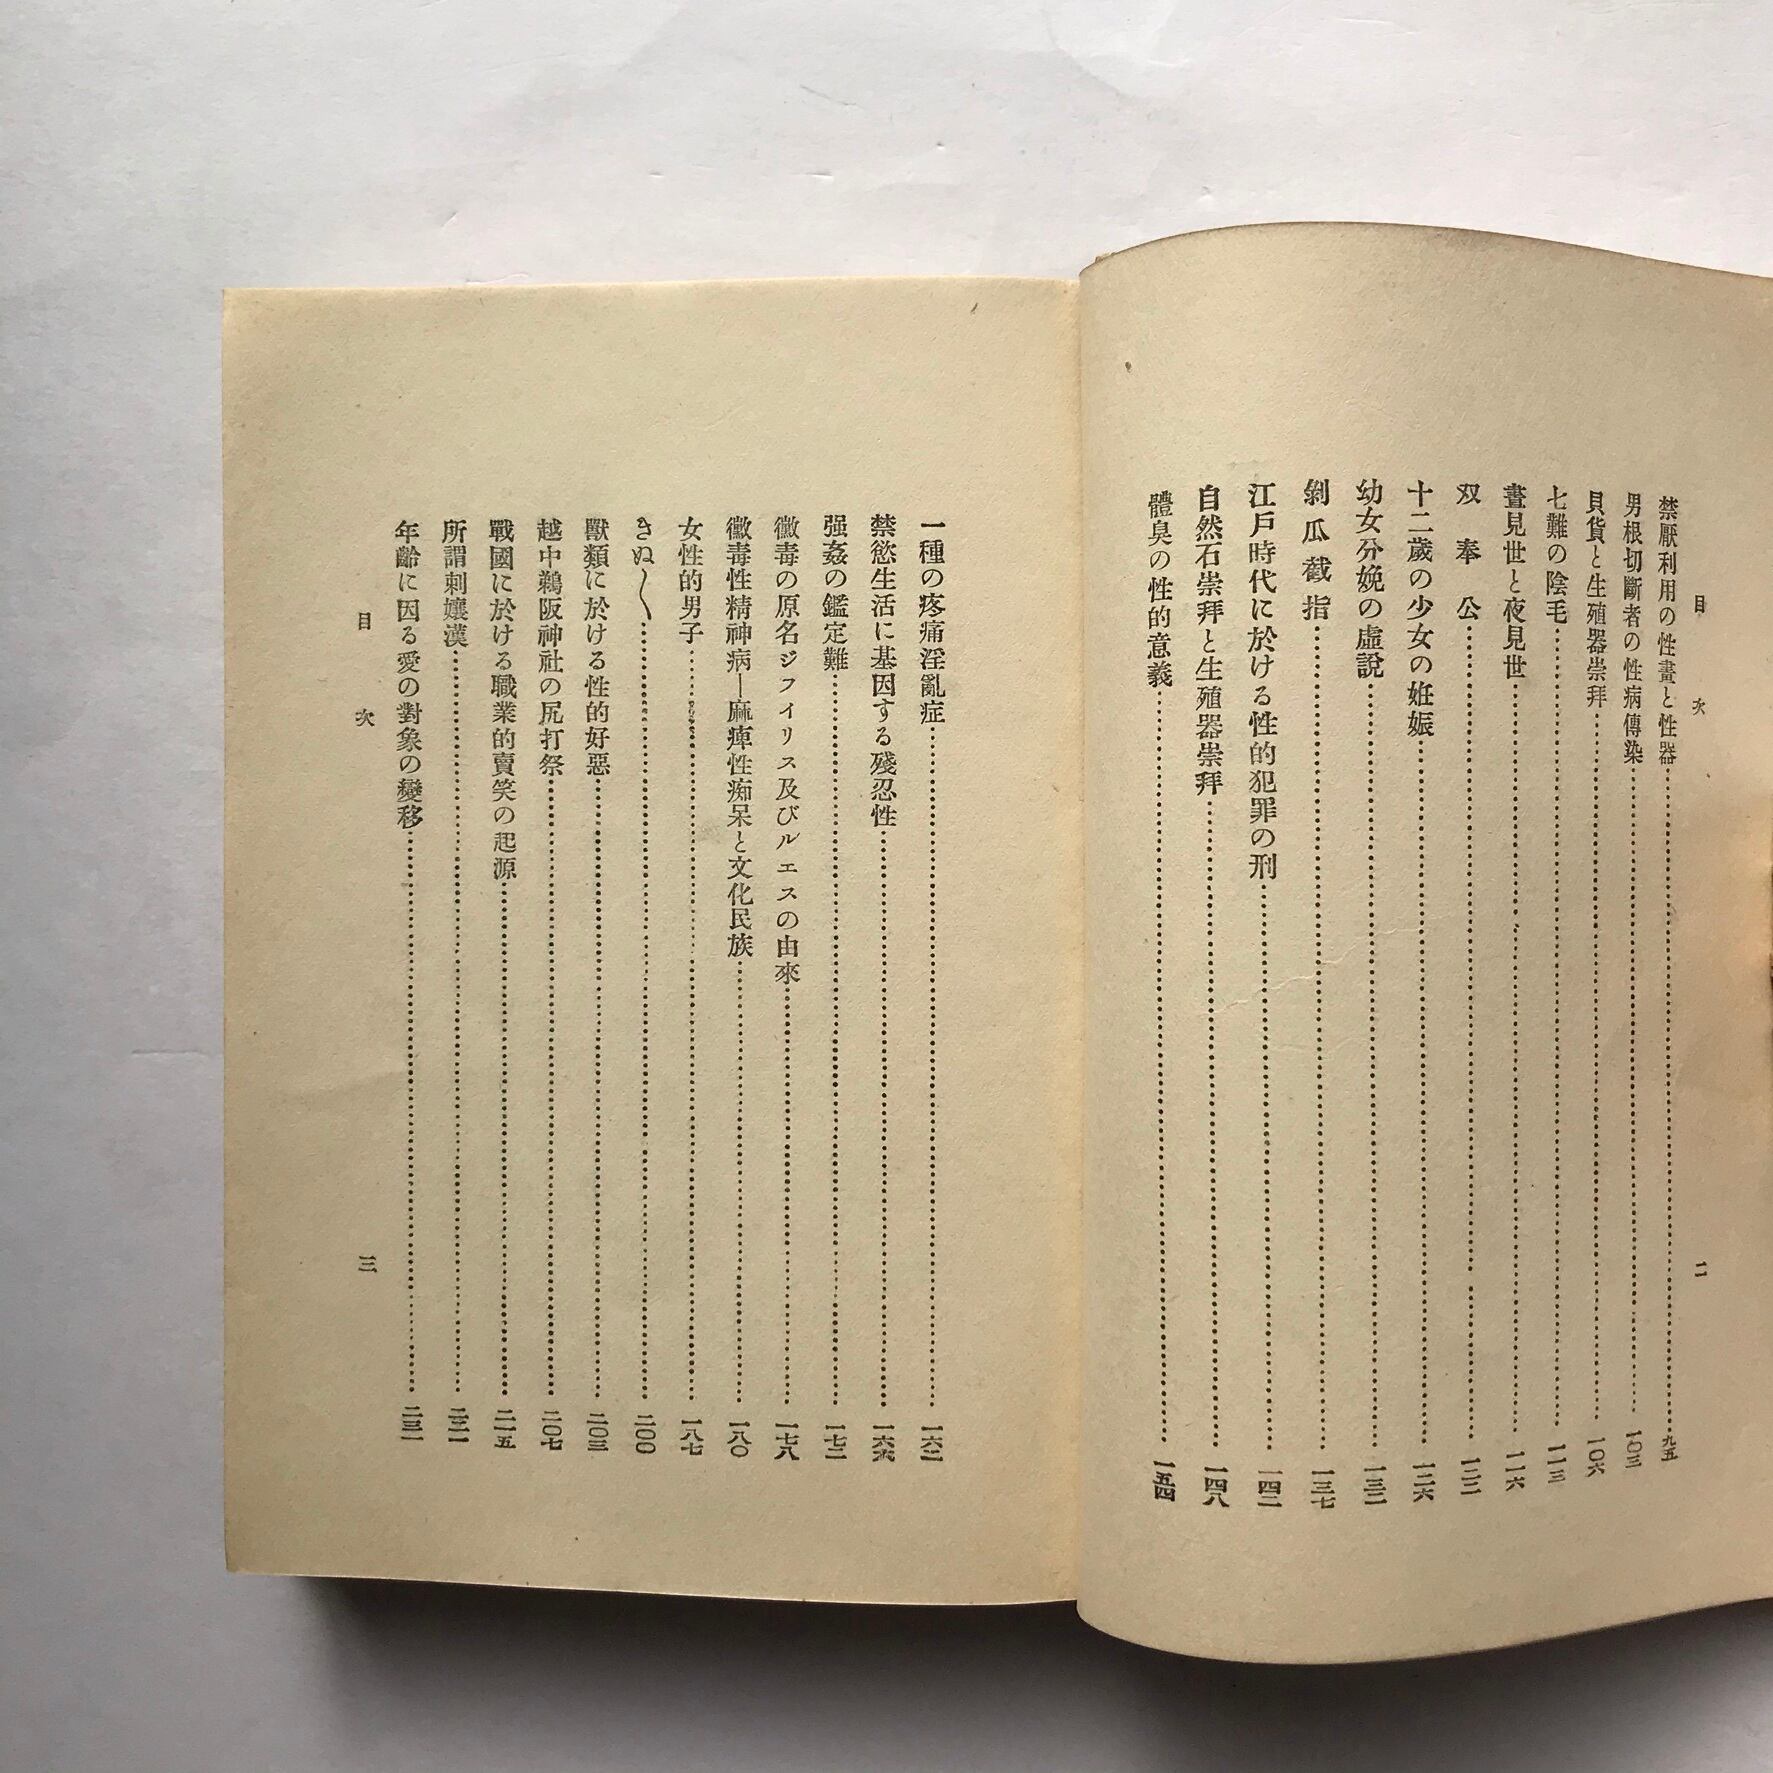 目次 二
禁厭利用の性畫と性器……九五
男根切斷者の性病傳染……一〇三
貝貨と生殖器崇拜……一〇六
七難の陰毛……一一三
晝見世と夜見世……一一六
双奉公……一二二
十二歳の少女の姙娠……一二六
幼女分娩の虛說……一三二
剝瓜截指……一三七
江戶時代に於ける性的犯罪の刑……一四二
自然石崇拜と生殖器崇拜……一四八
體臭の性的意義……一五四
一種の疼痛淫亂症……一六二
禁慾生活に基因する殘忍性……一六六
强姦の鑑定難……一七二
黴毒の原名ジフイリス及びルエスの由來……一七八
黴毒性精神病―麻痺性痴呆と文化民族……一八〇
女性的男子……一八七
きぬ〱……二〇〇
獸類に於ける性的好惡……二〇三
越中鵜阪神社の尻打祭……二〇七
戰國に於ける職業的賣笑の起源……二一五
所謂刺孃漢……
年齡に因る愛の對象の變移……
目次 三